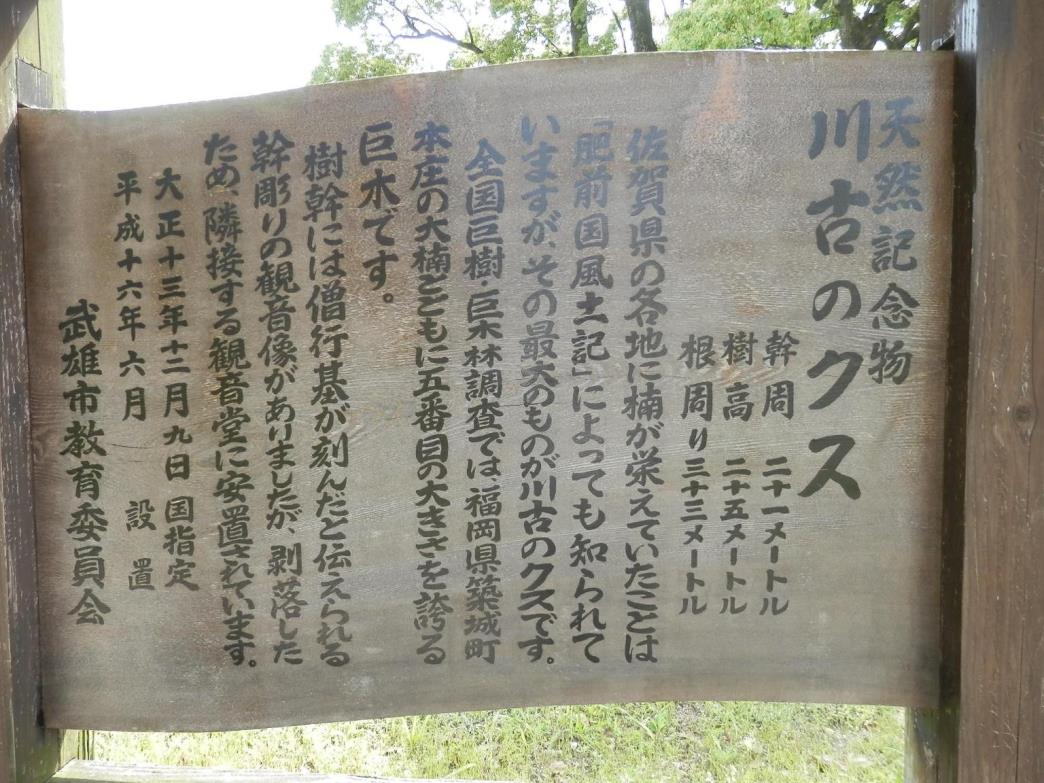 天然記念物
川古のクス
幹周 二十一メートル
樹高 二十五メートル
根周り三十三メートル
佐賀県の各地に楠が栄えていたことは
「肥前国風土記」によっても知られて
いますが、その最大のものが川古のクスです。
全国巨樹・巨木林調査では、福岡県築城町
本庄の大楠とともに五番目の大きさを誇る
巨木です。
樹幹には僧行基が刻んだと伝えられる
幹彫りの観音像がありましたが、剥落した
ため、隣接する観音堂に安置されています。
大正十三年十二月九日 国指定
平成十六年六月 設置
武雄市教育委員会